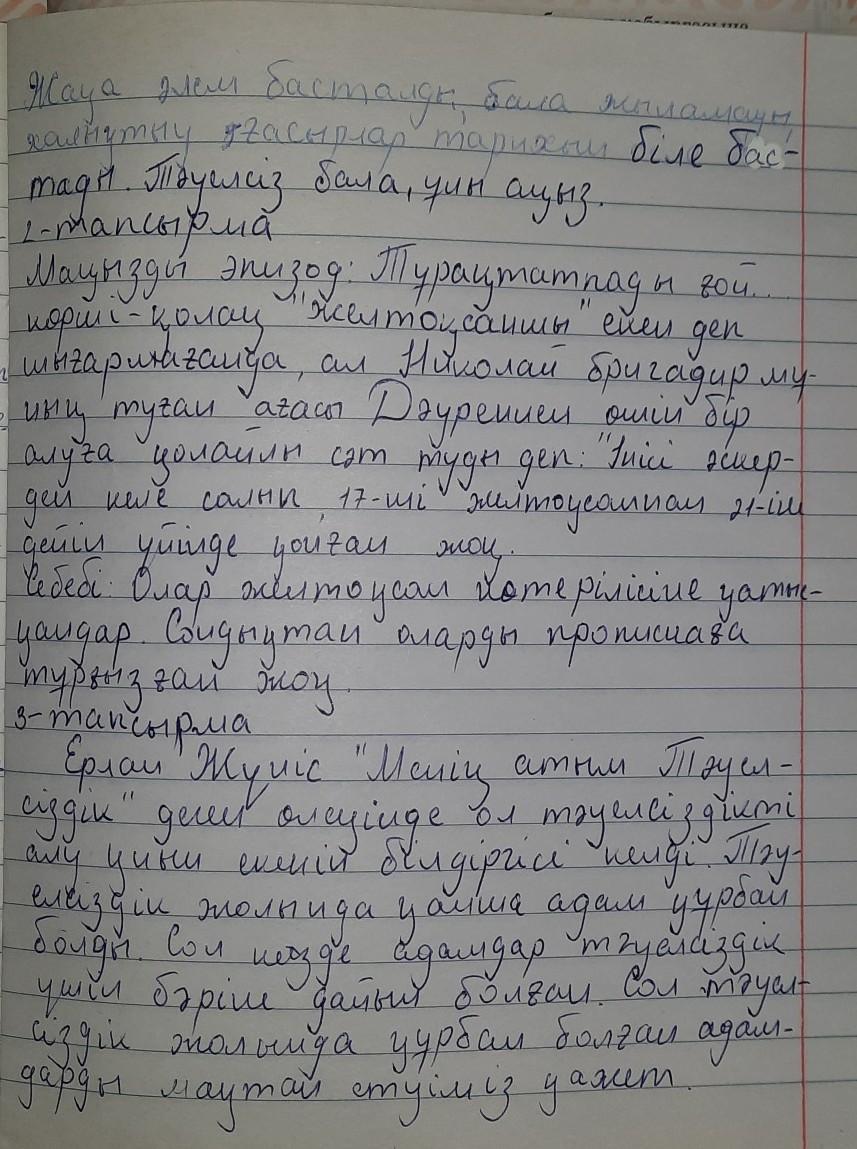 Жаңа әлем басталды, бала жыламады,
халқының ғасырлар тарихын біле бас-
тады. Тәуелсіз бала, қиын аңыз.
2-тапсырма
Маңызды эпизод: Тұрақтатпады ғой...
көрші-қолаң "желтоқсаншы" екен деп
шығармағанда, ал Николай бригадир мұ-
ның туған ағасы Дәуреннен өшін бір
алуға қолайлы сәт туды деп: "Інісі әскер-
ден келе салып, 17-ші желтоқсаннан 21-ін
дейін үйінде қонған жоқ.
Себебі: Олар желтоқсан көтерілісіне қатыс-
қандар. Сондықтан оларды пропискаға
тұрғызған жоқ.
3-тапсырма
Ерлан Жүніс "Менің атым Тәуел-
сіздік" деген өлеңінде ол тәуелсіздікті
алу қиын екенін білдіргісі келді. Тәу-
елсіздік жолында қанша адам құрбан
болды. Сол кезде адамдар тәуелсіздік
үшін бәріне дайын болған. Сол тәуел-
сіздік жолында құрбан болған адам-
дарды мақтан етуіміз қажет.